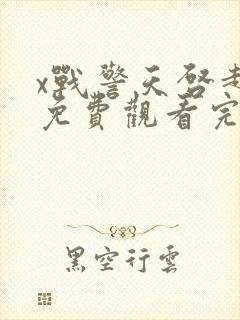 x戰警天啓
免費觀看完
黑空行雲